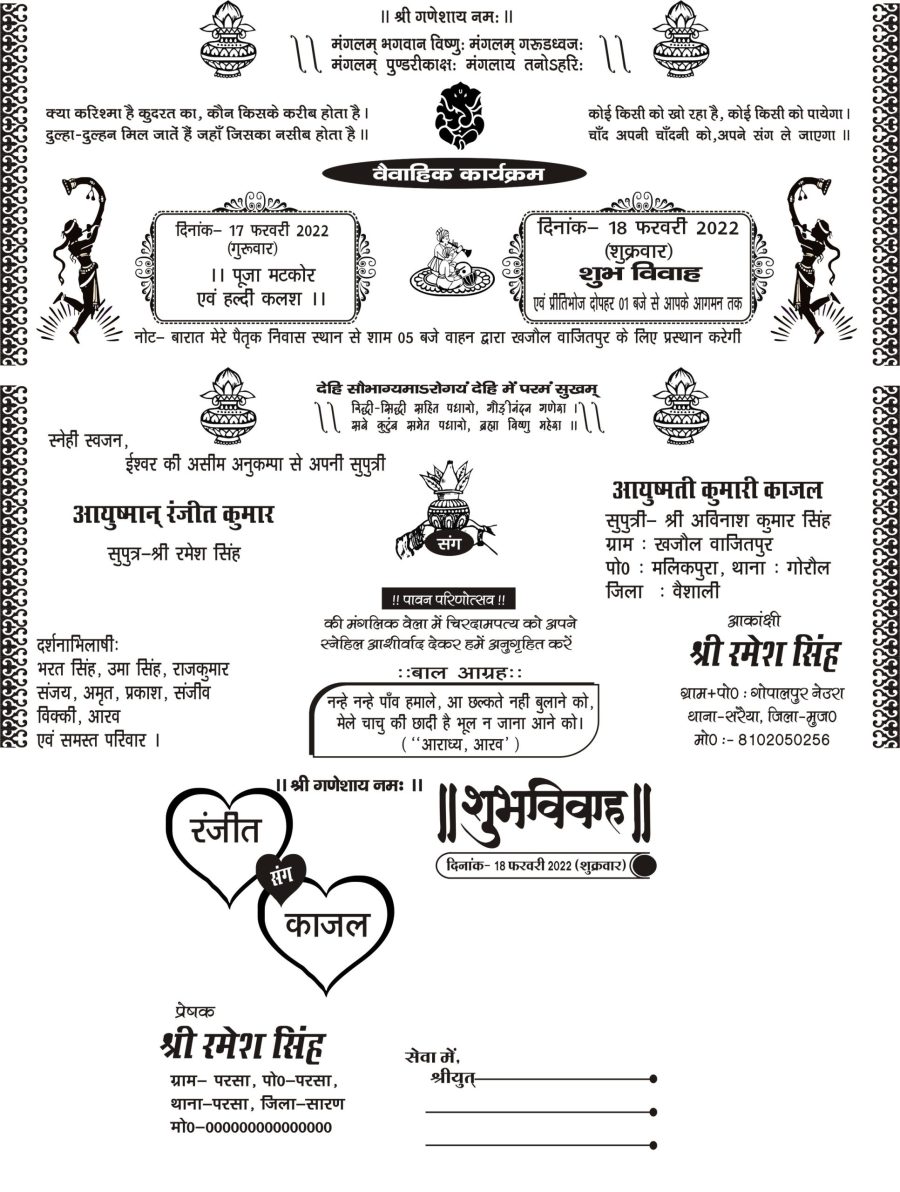 ।। श्री गणेशाय नम: ।।
मंगलम् भगवान विष्णु: मंगलम् गरूडध्वज:
मंगलम् पुण्डरीकाक्ष: मंगलाय तनोऽहरि:
क्या करिश्मा है कुदरत का, कौन किसके करीब होता है।
दुल्हा-दुल्हन मिल जातें हैं जहाँ जिसका नसीब होता है।।
कोई किसी को खो रहा है, कोई किसी को पायेगा।
चाँद अपनी चाँदनी को,अपने संग ले जाएगा ।।
वैवाहिक कार्यक्रम
दिनांक- 17 फरवरी 2022
(गुरूवार)
।। पूजा मटकोर
एवं हल्दी कलश ।।
दिनांक- 18 फरवरी 2022
(शुक्रवार)
शुभ विवाह
एवं प्रीतिभोज दोपहर 01 बजे से आपके आगमन तक
नोट- बारात मेरे पैतृक निवास स्थान से शाम 05 बजे वाहन द्वारा खजौल वाजितपुर के लिए प्रस्थान करेगी
देहि सौभाग्यमाऽरोगयं देहि में परमं सुखम्
रिद्धी-सिद्धी सहित पधारो, गौड़ीनंदन गणेश ।
सबे कुटुंब समेत पधारो, ब्रह्मा विष्णु महेश ॥
स्नेही स्वजन,
ईश्वर की असीम अनुकम्पा से अपनी सुपुत्री
आयुष्मान् रंजीत कुमार
सुपुत्र-श्री रमेश सिंह
संग
आयुष्मती कुमारी काजल
सुपुत्री- श्री अविनाश कुमार सिंह
ग्राम : खजौल वाजितपुर
पो0 : मलिकपुरा, थाना : गोरौल
जिला : वैशाली
!! पावन परिणोत्सव !!
की मंगलिक वेला में चिरदामपत्य को अपने
स्नेहिल आशीर्वाद देकर हमें अनुगृहित करें
::बाल आग्रह::
नन्हे नन्हे पाँव हमाले, आ छल्कते नही बुलाने को,
मेले चाचु की छादी है भूल न जाना आने को।
( ‘‘आराध्य, आरव’ )
दर्शनाभिलाषीः
भरत सिंह, उमा सिंह, राजकुमार
संजय, अमृत, प्रकाश, संजीव
विक्की, आरव
एवं समस्त परिवार ।
आकांक्षी
श्री रमेश सिंह
ग्राम+पो0 : गोपालपुर नेउरा
थाना-सरैया, जिला-मुज0
मो0 :- 8102050256
।। श्री गणेशाय नमः ।।
रंजीत
संग
काजल
॥शुभविवाह॥
दिनांक- 18 फरवरी 2022 (शुक्रवार)
प्रेषक
श्री रमेश सिंह
ग्राम- परसा, पो0-परसा,
थाना-परसा, जिला-सारण
मो0-000000000000000
सेवा में,
श्रीयुत्